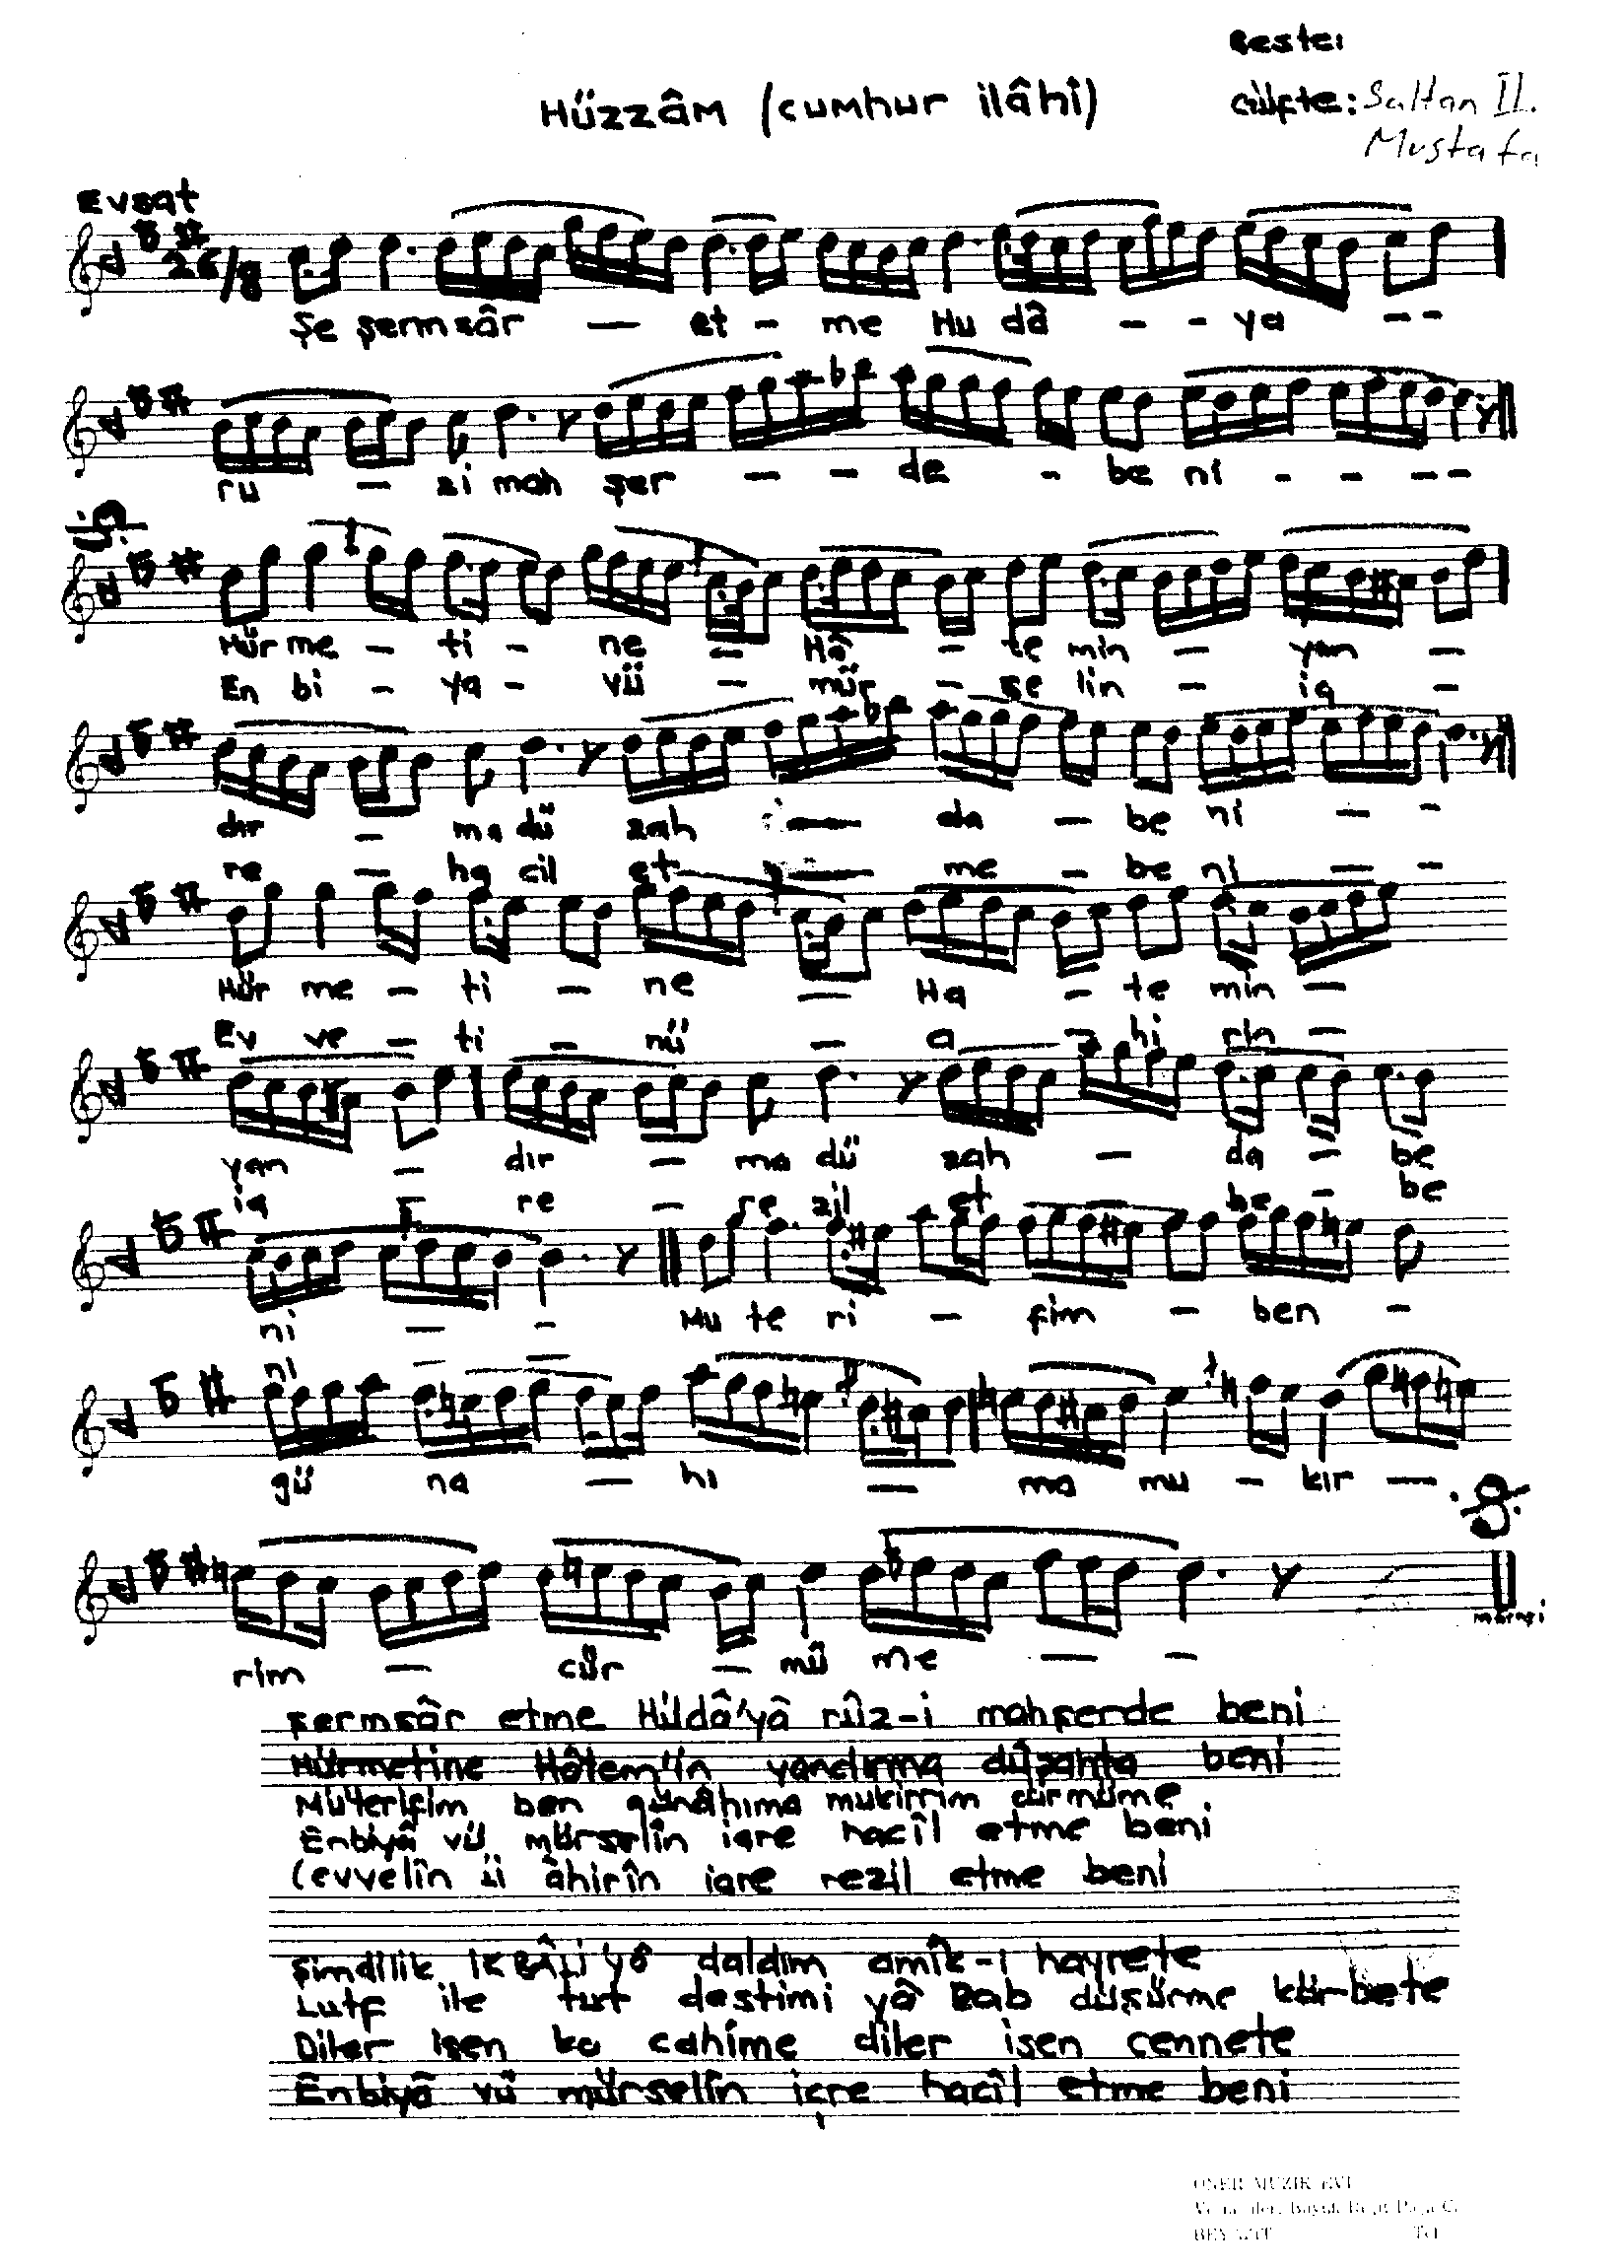 Beste:
Hüzzâm (cumhur ilâhî)
Güfte: Sultan II.
Mustafa
Evsat
26/8
Şe şermsâr — et - me Hu dâ - - ya - -
ru — zi mah şer — - de - be ni - - - -
Hür me - ti - ne — Hâ - te min — yan —
En bi - ya - vü — mür - se lin - iç —
dır — ma dü zah — da — be ni — -
re — ha cil et — me - be ni — -
Hür me - ti — ne — Ha - te min —
Ev ve - ti - nü — a - hi rin —
yan - dır — ma dü zah — da - be
iç - re — re zil et — be - be
ni — - Mu te ri - fim - ben -
ni - —
gü na — hı — ma mu - kir —
rim — cür — mü me — -
marşi
Şermsâr etme Hüdâ'yâ rûz-i mahşerde beni
Hürmetine Hâtem'in yandırma dûzahta beni
Mu'terifim ben günâhıma mukirrim cürmüme
Enbiyâ vü mürselîn içre hacîl etme beni
(evvelîn ü âhirîn içre rezil etme beni
Şimdilik İKBÂLİ'yâ daldım amîk-ı hayrete
Lutf ile tut destimi yâ Rab düşürme kürbete
Diler isen ko cahîme diler isen cennete
Enbiyâ vü mürselîn içre hacîl etme beni
ÖNER MÜZİK EVİ
BEYAZIT Tel